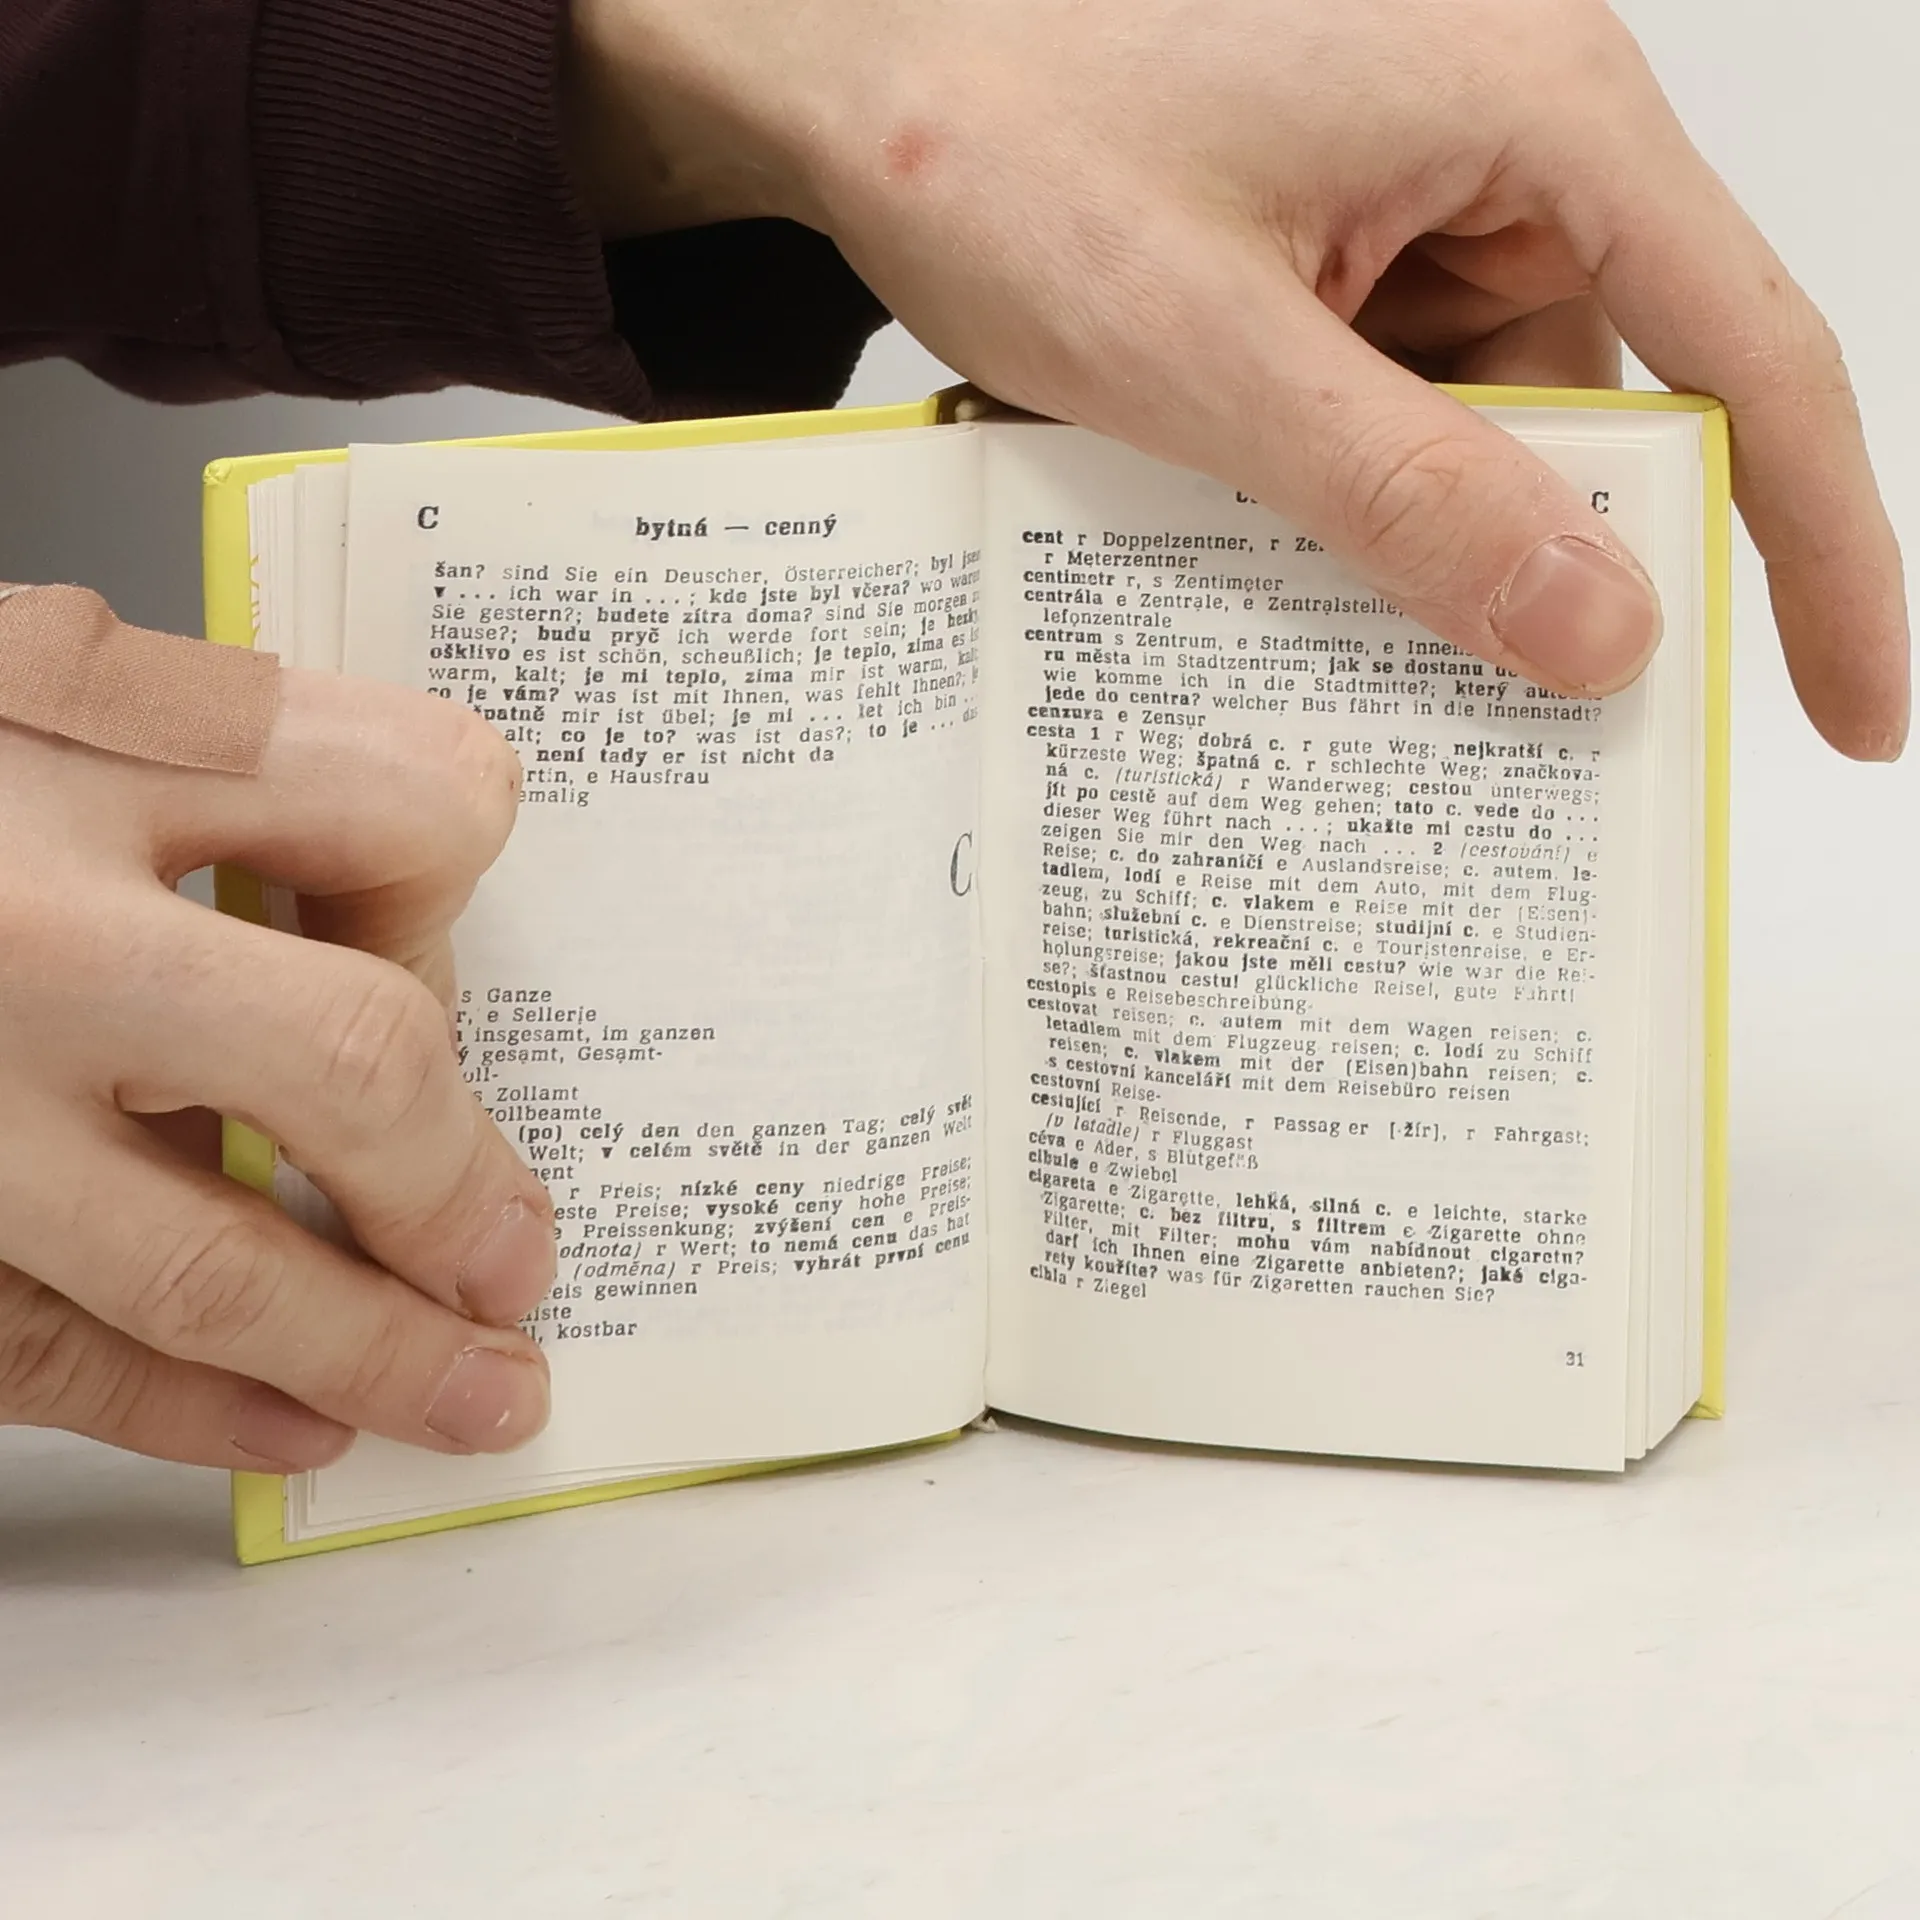 C
bytná — cenný
šan? sind Sie ein Deuscher, Österreicher?; byl jsem
v ... ich war in ...; kde jste byl včera? wo waren
Sie gestern?; budete zítra doma? sind Sie morgen
Hause?; budu pryč ich werde fort sein; je hezky
ošklivo es ist schön, scheußlich; je teplo, zima es ist
warm, kalt; je mi teplo, zima mir ist warm, kalt
co je vám? was ist mit Ihnen, was fehlt Ihnen?;
špatně mir ist übel; je mi ... let ich bin ...
alt; co je to? was ist das?; to je ... das
není tady er ist nicht da
e Hausfrau
C
s Ganze
e Sellerie
insgesamt, im ganzen
gesamt, Gesamt-
s Zollamt
Zollbeamte
(po) celý den den ganzen Tag; celý svět
Welt; v celém světě in der ganzen Welt
r Preis; nízké ceny niedrige Preise;
Preise; vysoké ceny hohe Preise;
Preissenkung; zvýšení cen e Preis-
r Wert; to nemá cenu das hat
(odměna) r Preis; vyhrát první cenu
gewinnen
kostbar
C
cent r Doppelzentner, r
r Meterzentner
centimetr r, s Zentimeter
centrála e Zentrale, e Zentralstelle,
lefonzentrale
centrum s Zentrum, e Stadtmitte, e
ru města im Stadtzentrum; jak se dostanu
wie komme ich in die Stadtmitte?; který
jede do centra? welcher Bus fährt in die Innenstadt?
cenzura e Zensur
cesta 1 r Weg; dobrá c. r gute Weg; nejkratší c. r
kürzeste Weg; špatná c. r schlechte Weg; značkova-
ná c. (turistická) r Wanderweg; cestou unterwegs;
jít po cestě auf dem Weg gehen; tato c. vede do ...
dieser Weg führt nach ...; ukažte mi cestu do ...
zeigen Sie mir den Weg nach ... 2 (cestování) e
Reise; c. do zahraničí e Auslandsreise; c. autem, le-
tadlem, lodí e Reise mit dem Auto, mit dem Flug-
zeug, zu Schiff; c. vlakem e Reise mit der (Eisen)-
bahn; služební c. e Dienstreise; studijní c. e Studien-
reise; turistická, rekreační c. e Touristenreise, e Er-
holungsreise; jakou jste měli cestu? wie war die Rei-
se?; šťastnou cestu! glückliche Reise!, gute Fahrt!
cestopis e Reisebeschreibung
cestovat reisen; c. autem mit dem Wagen reisen; c.
letadlem mit dem Flugzeug reisen; c. lodí zu Schiff
reisen; c. vlakem mit der (Eisen)bahn reisen; c.
s cestovní kanceláří mit dem Reisebüro reisen
cestovní Reise-
cestující r Reisende, r Passagier [-žír], r Fahrgast;
(v letadle) r Fluggast
céva e Ader, s Blutgefäß
cibule e Zwiebel
cigareta e Zigarette, lehká, silná c. e leichte, starke
Zigarette; c. bez filtru, s filtrem e Zigarette ohne
Filter, mit Filter; mohu vám nabídnout cigaretu?
darf ich Ihnen eine Zigarette anbieten?; jaké ciga-
rety kouříte? was für Zigaretten rauchen Sie?
cihla r Ziegel
31